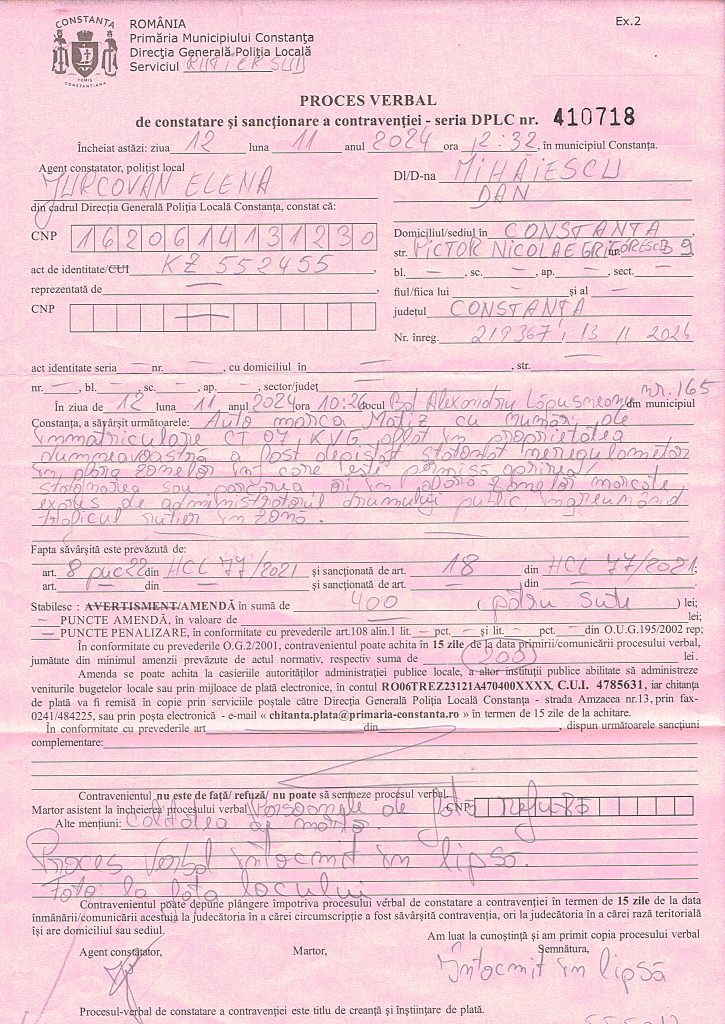 CONSTANȚA
TOMIS
CONSTANTIANA
ROMÂNIA
Primăria Municipiului Constanța
Direcția Generală Poliția Locală
Serviciul RUTIER SUD
Ex.2
PROCES VERBAL
de constatare și sancționare a contravenției - seria DPLC nr. 410718
Încheiat astăzi: ziua 12 luna 11 anul 2024 ora 12:32, în municipiul Constanța.
Agent constatator, polițist local
JURCOVAN ELENA
din cadrul Direcția Generală Poliția Locală Constanța, constat că:
Dl/D-na MIHĂIESCU
DAN
CNP 1620614131230
act de identitate/CUI KZ 552455,
reprezentată de — ,
CNP —
Domiciliul/sediul în CONSTANȚA
str. PICTOR NICOLAE GRIGORESCU nr. 9
bl. — , sc. — , ap. — , sect. —
fiul/fiica lui — și al —
județul CONSTANȚA
Nr. înreg. 219367, 13 11 2024
act identitate seria — nr. — , cu domiciliul în — , str. —
nr. — , bl. — , sc. — , ap. — , sector/județ —
În ziua de 12 luna 11 anul 2024 ora 10:26 locul Bd Alexandru Lăpușneanu nr. 165 din municipiul
Constanța, a săvârșit următoarele: Auto marca Matiz cu număr de
înmatriculare CT 07 KVG aflat în proprietatea
dumneavoastră a fost depistat staționat neregulamentar
în afara zonelor în care este permisă oprirea/
staționarea sau parcarea, ori în afara zonelor marcate
expres de administratorul drumului public, îngreunând
traficul rutier în zonă.
Fapta săvârșită este prevăzută de:
art. 8 pct 22 din HCL 77/2021 și sancționată de art. 18 din HCL 77/2021;
art. — din — și sancționată de art. — din — ;
Stabilesc : AVERTISMENT/AMENDĂ în sumă de 400 (patru sute) lei;
— PUNCTE AMENDĂ, în valoare de — lei;
— PUNCTE PENALIZARE, în conformitate cu prevederile art.108 alin.1 lit. — pct. — și lit. — pct. — din O.U.G.195/2002 rep;
În conformitate cu prevederile O.G.2/2001, contravenientul poate achita în 15 zile de la data primirii/comunicării procesului verbal,
jumătate din minimul amenzii prevăzute de actul normativ, respectiv suma de (200) lei .
Amenda se poate achita la casieriile autorităților administrației publice locale, a altor instituții publice abilitate să administreze
veniturile bugetelor locale sau prin mijloace de plată electronice, în contul RO06TREZ23121A470400XXXX, C.U.I. 4785631, iar chitanța
de plată va fi remisă în copie prin serviciile poștale către Direcția Generală Poliția Locală Constanța - strada Amzacea nr.13, prin fax-
0241/484225, sau prin poșta electronică - e-mail « chitanta.plata@primaria-constanta.ro » în termen de 15 zile de la achitare.
În conformitate cu prevederile art din , dispun următoarele sancțiuni
complementare:
Contravenientul nu este de față/ refuză/ nu poate să semneze procesul verbal
Martor asistent la încheierea procesului verbal Persoanele de față refuză CNP
Alte mențiuni: calitatea de martor.
Proces Verbal întocmit în lipsă.
Foto la fața locului
Contravenientul poate depune plângere împotriva procesului verbal de constatare a contravenției în termen de 15 zile de la data
înmânării/comunicării acestuia la judecătoria în a cărei circumscripție a fost săvârșită contravenția, ori la judecătoria în a cărei rază teritorială
își are domiciliul sau sediul.
Am luat la cunoștință și am primit copia procesului verbal
Agent constatator, Martor, Semnătura,
Întocmit în lipsă
Procesul-verbal de constatare a contravenției este titlu de creanță și înștiințare de plată.